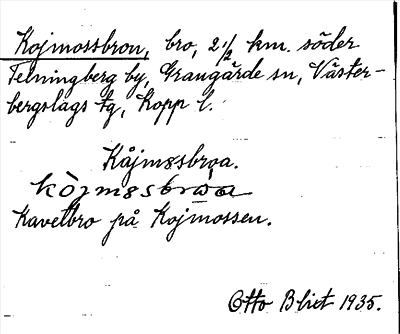 Kojmossbron, bro, 2 1/2 km. söder
Telningberg by, Grangärde sn, Väster-
bergslags tg, Kopp l.
Kåjmɷssbrɷa.
Kavelbro på Kojmossen.
Otto Blixt 1935.